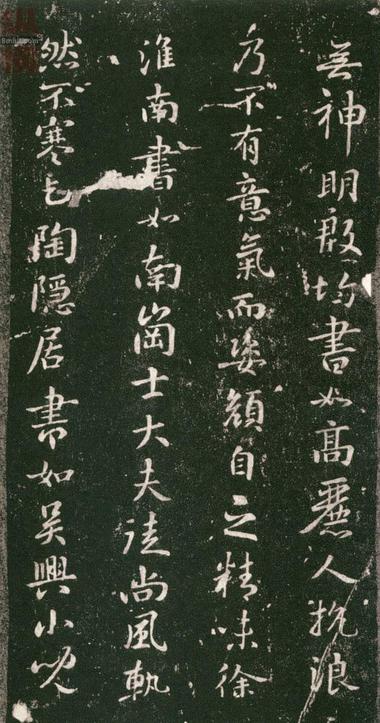 無神明殷均書如高麗人抗浪
乃不有意氣而姿顏自乏精味徐
淮南書如南崗士大夫徒尚風軌
然不寒乞陶隱居書如吳興小兒